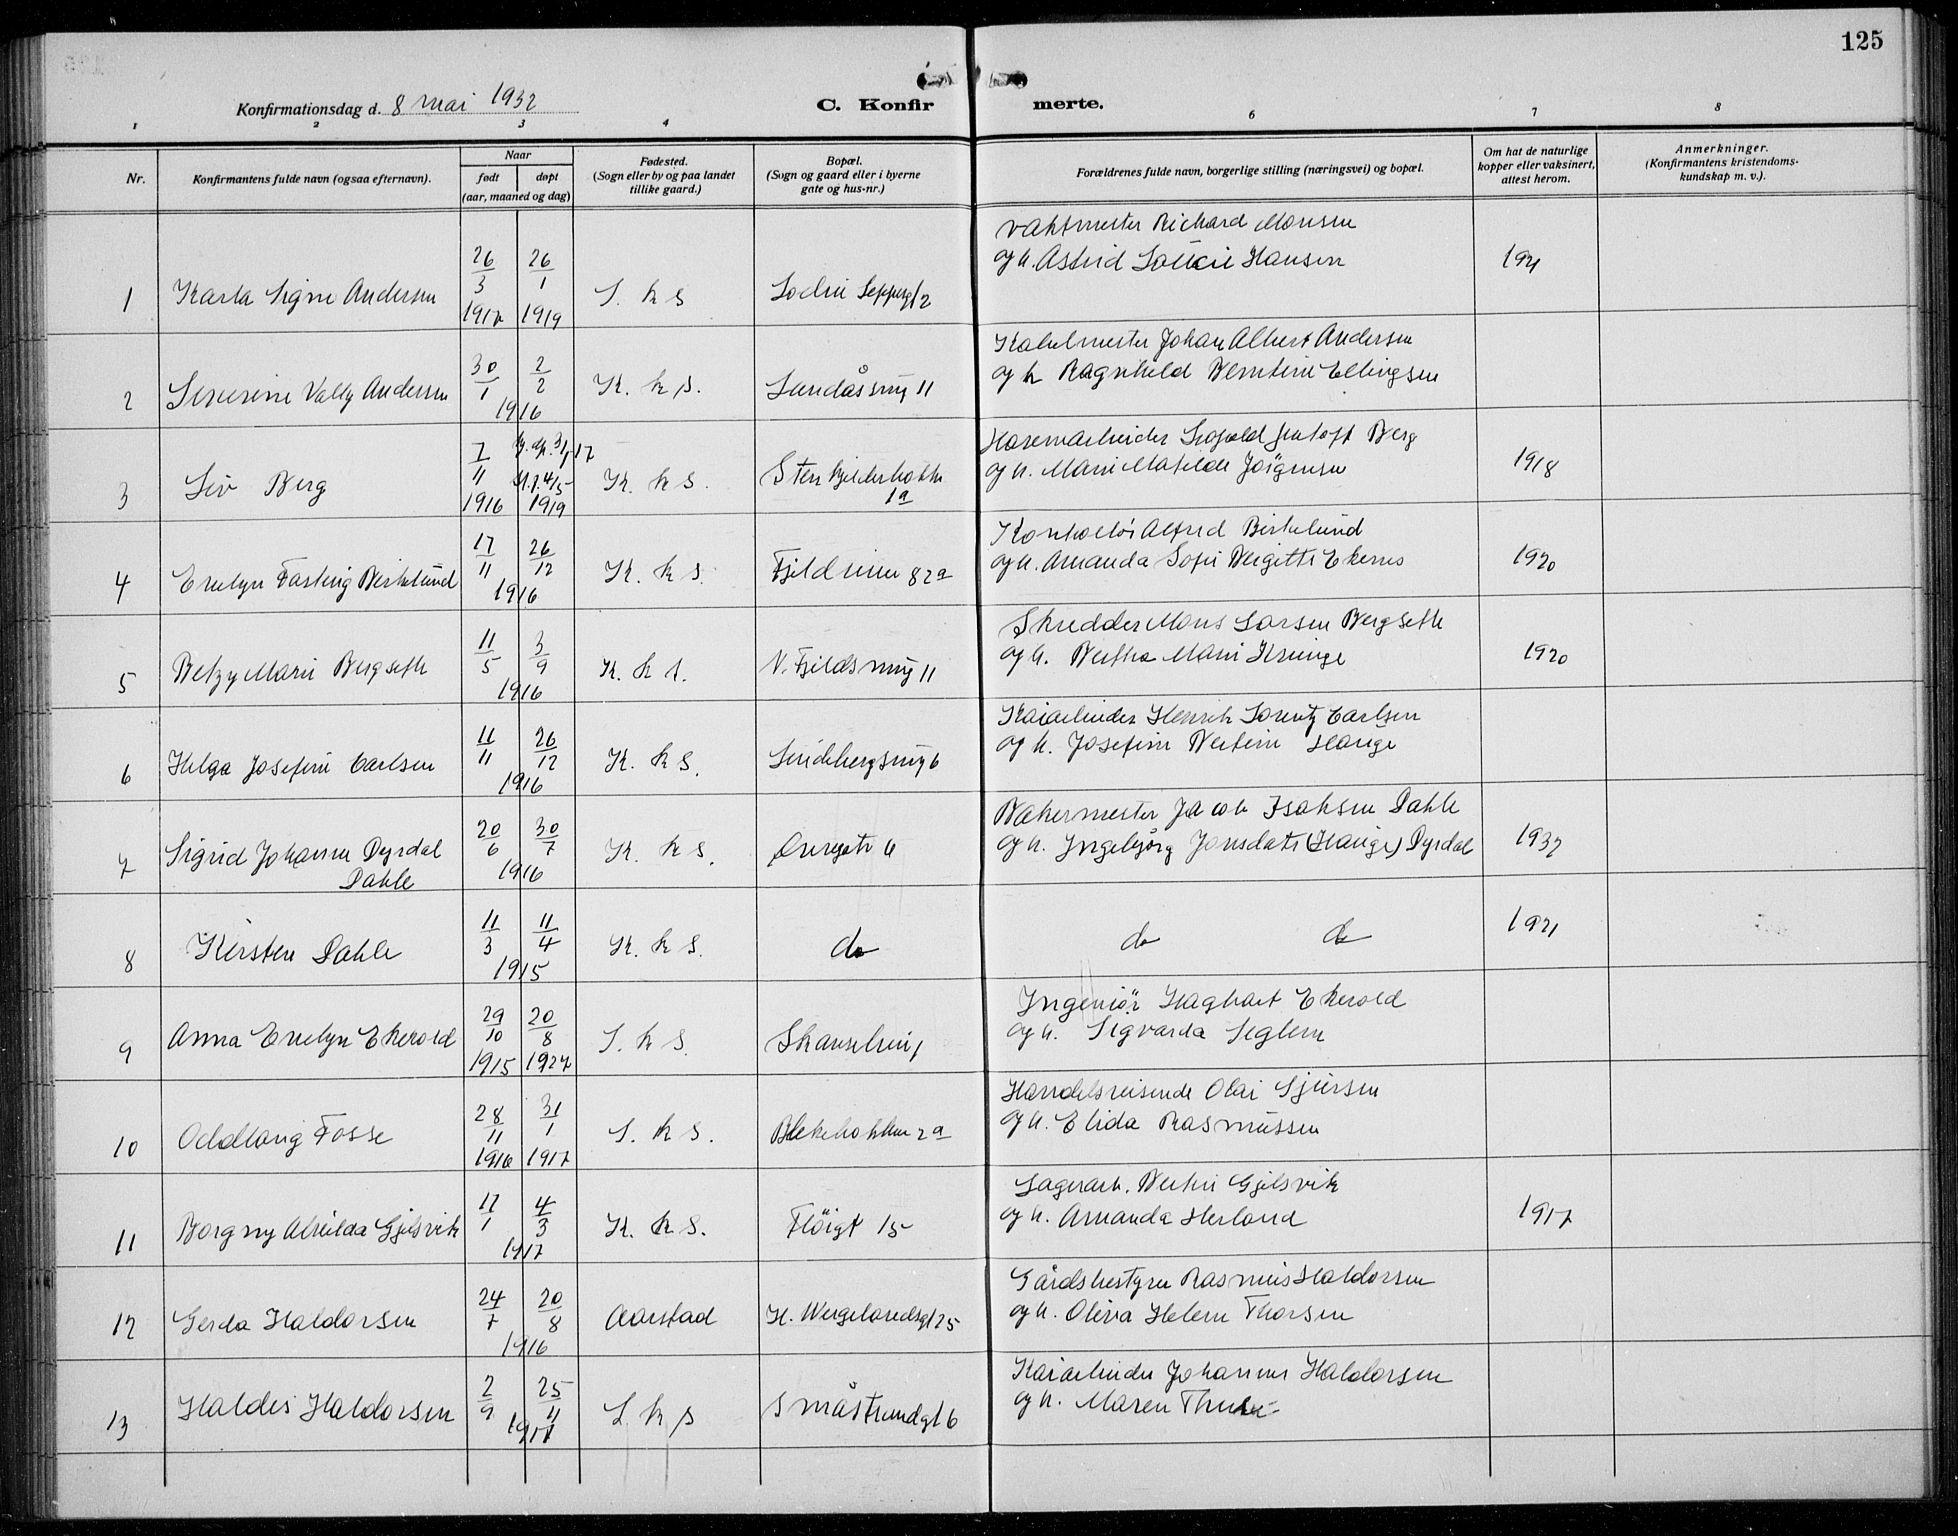 125
Konfirmationsdag d. 8 mai 1932
C. Konfirmerte.
1 2 3 4 6 7 8
Nr.
Konfirmantens fulde navn (ogsaa efternavn).
Naar
født døpt
(aar, maaned og dag)
Fødested.
(Sogn eller by og paa landet
tillike gaard.)
Bopæl.
(Sogn og gaard eller i byerne
gate og hus-nr.)
Forældrenes fulde navn, borgerlige stilling (næringsvei) og bopæl.
Om hat de naturlige
kopper eller vaksinert,
attest herom.
Anmerkninger.
(Konfirmantens kristendoms-
kundskap m. v.).
vaktmester Richard Monsen
og h. Astrid Hansen
1 Karla Signe Andersen 26/3 1917 26/1 1919 S. k s 2 1921
Kabelmester Johan Albert Andersen
og h Ragnhild Ellingsen
2 Severine Vally Andersen 30/1 2/2 1916 K. k s. 11
Havnearbeider Leopold Berg
og h. Marie Matilde Jørgensen
3 Liv Berg 7/11 1916 hj. dp. 3/1 17 st. f. 4/5 1919 K. k s. Sten Kjelderbakke 1a 1918
Kontorist Alfred Birkelund
og h. Amanda Sofie Bergitte Ekernes
4 Evelyn Fasting Birkelund 17/11 26/12 1916 K. k s. Fjeldveien 82a 1920
Skredder Mons Larsen Bergseth
og h. Bertha Marie Kringe
5 Betzy Marie Bergseth 11/5 3/9 1916 K. k s. N. Fjeldsmug 11 1920
Kaiarbeider Henrik Lorentz Carlsen
og h. Josefine Hauge
6 Helga Josefine Carlsen 11/11 26/12 1916 K. k s. 6
Bakermester Jacob Isaksen Dahle
og h. Ingebjørg Jonsdatr (Hauge) Dyrdal
7 Sigrid Johanne Dyrdal Dahle 20/6 30/7 1916 K. k s. Øvregate 6 1932
8 Kirsten Dahle 11/3 11/4 1915 K. k s. do do do 1921
Ingeniør Haghart Ekerold
og h. Sigvarda Seglem
9 Anna Evelyn Ekerold 29/10 1915 20/8 1927 S. k s. Skanselien 1
Handelsreisende Olai Sjursen
og h. Elida Rasmussen
10 Oddlaug Fosse 28/11 1916 31/1 1917 S. k s. Blekebakken 2a
Lagerarb. Gjelsvik
og h. Amanda Herland
11 Borgny Alvilda Gjelsvik 17/1 4/3 1917 K. k s. Fløigt 15 1917
Gårdsbestyrer Rasmus Haldorsen
og h. Oliva Helene Thorsen
12 Gerda Haldorsen 24/7 20/8 1916 Aarstad H. Wergelandsgt 25
Kaiarbeider Johannes Haldorsen
og h. Maren
13 Haldis Haldorsen 2/9 25/11 1917 S. k s Småstrandgt 6